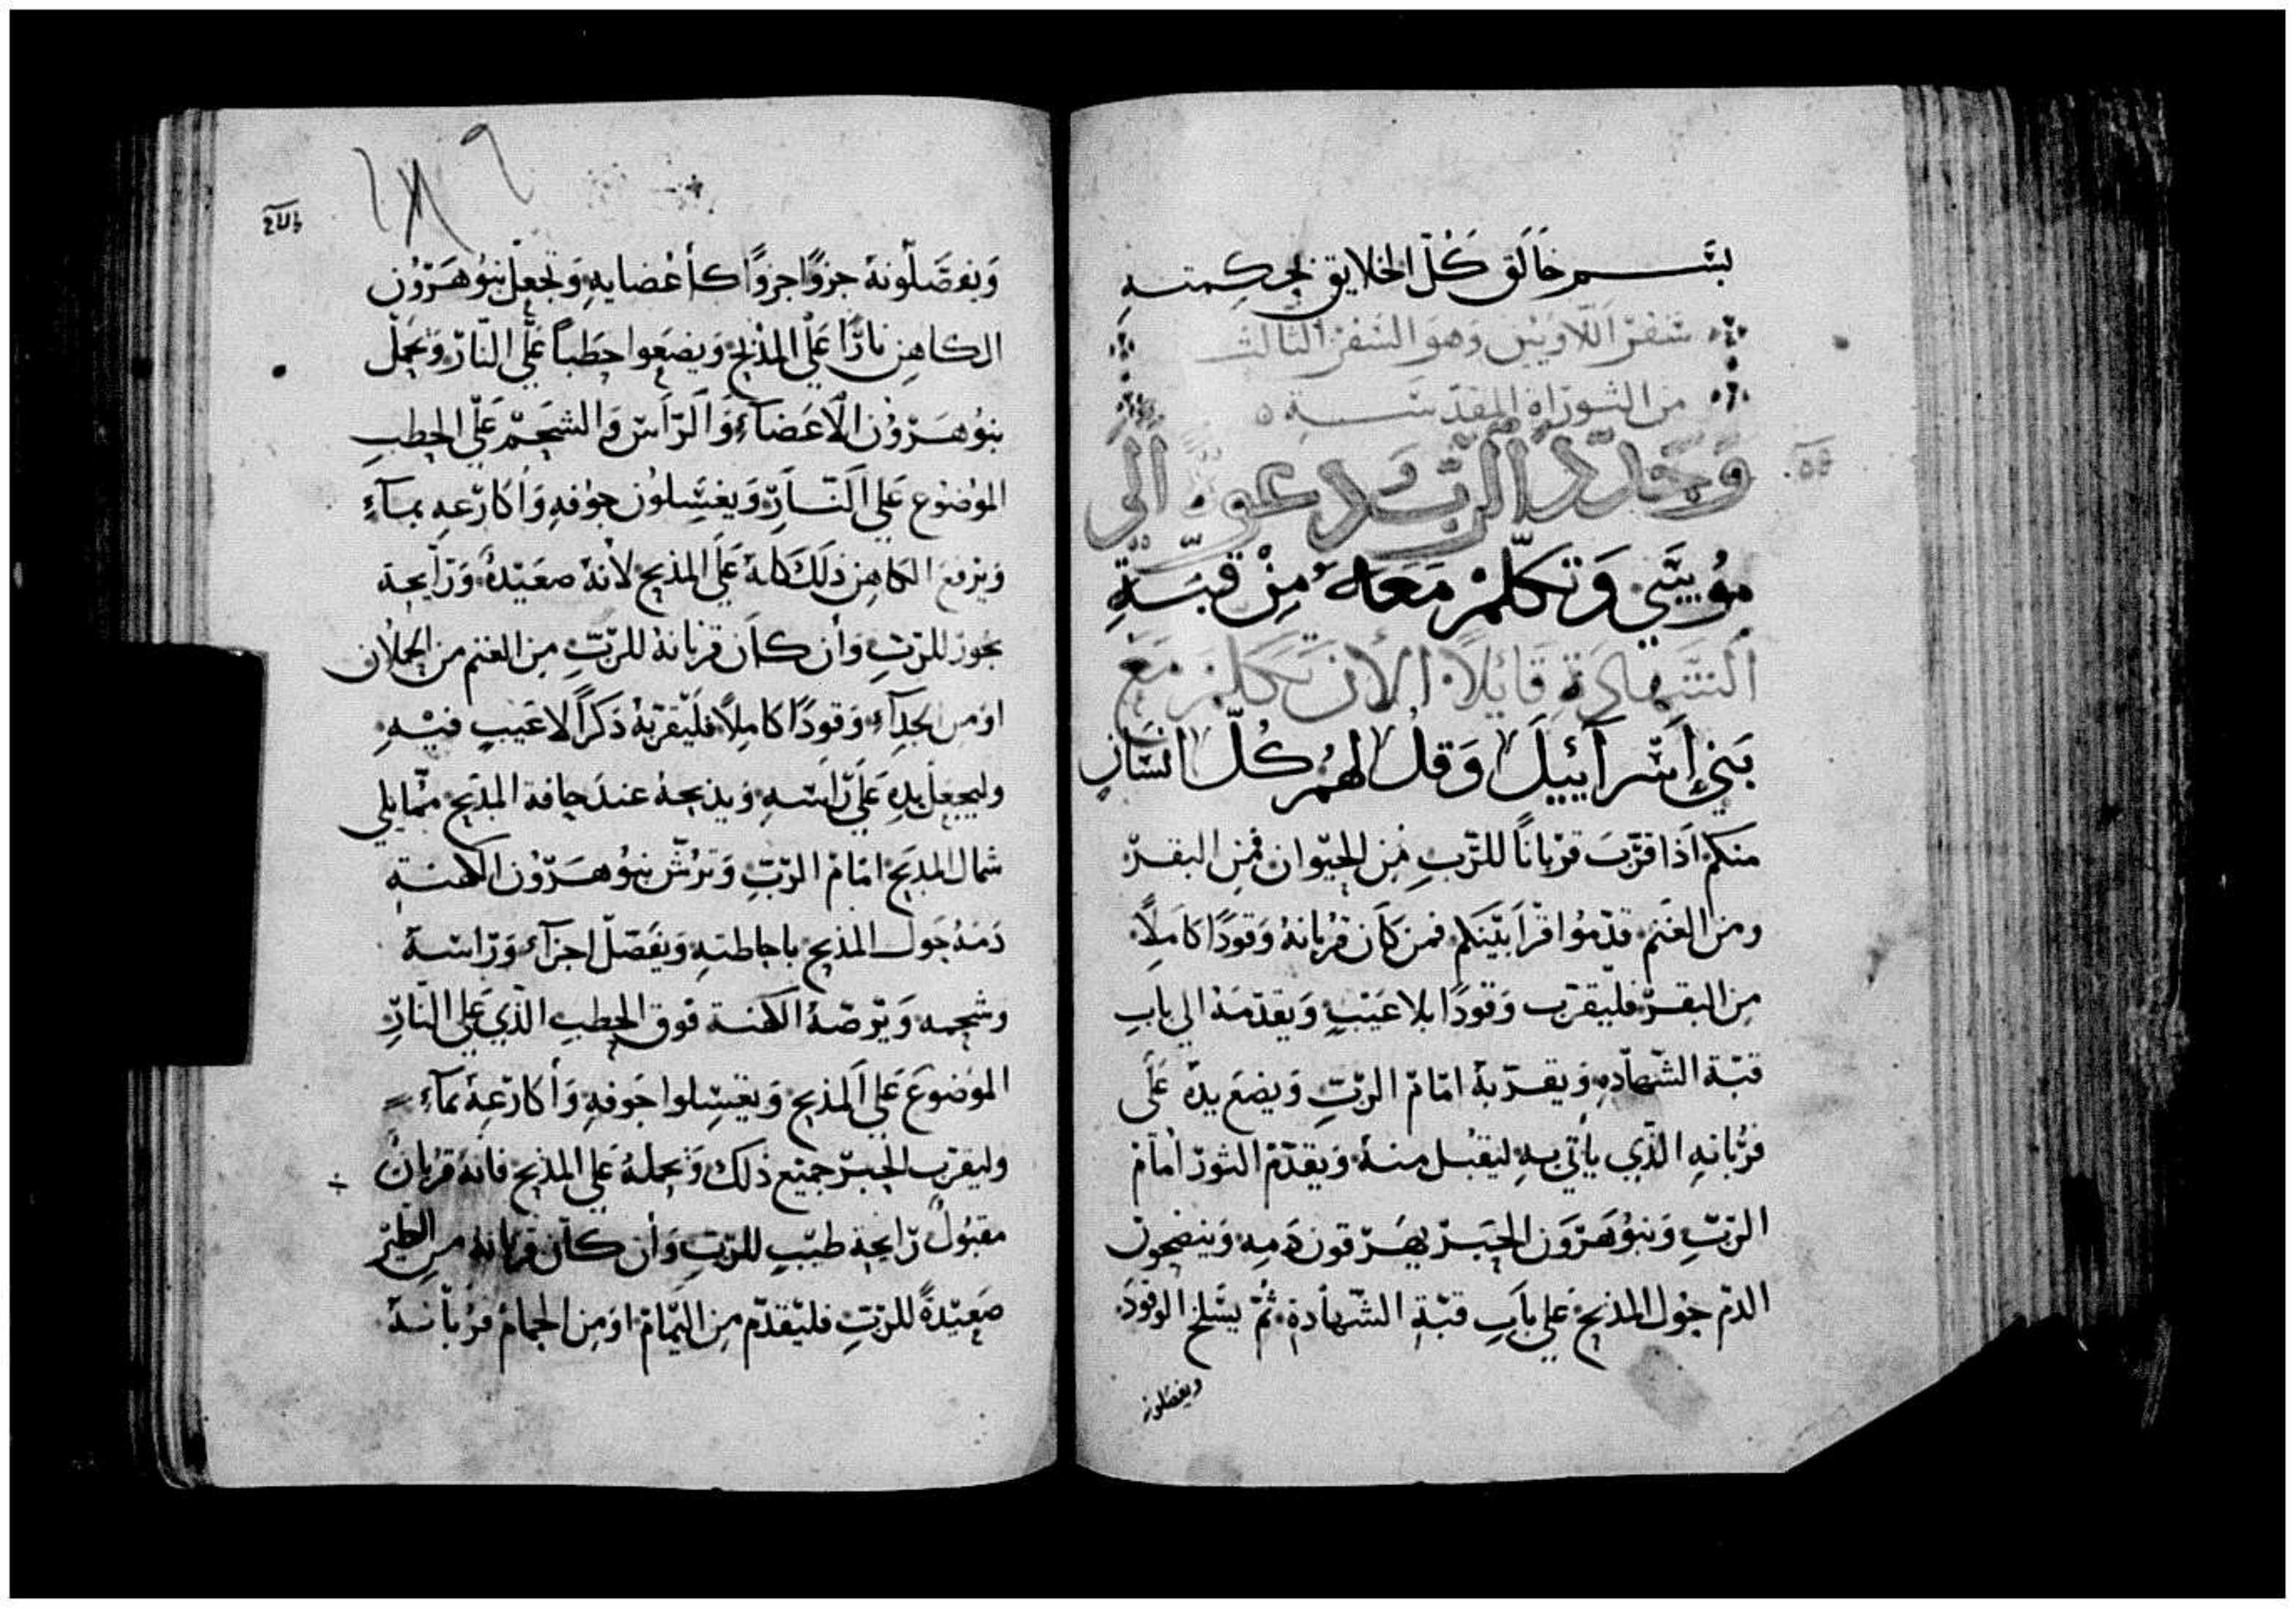 بسم خالق كل الخلايق بحكمته
سفر اللاويين وهو السفر الثالث
من التوراة المقدسة
وجدد الرب دعوة الى
موسي وتكلم معه من قبة
الشهادة قائلاً الان تكلم مع
بني اسرآييل وقل لهم كل انسان
منكم اذا قرب قرباناً للرب من الحيوان فمن البقر
ومن الغنم قدموا قرابينكم فمن كان قربانه وقودًا كاملاً
من البقر فليقرب وقودًا بلا عيب ويقدمه الي باب
قبة الشهاده ويقربه امام الرب ويضع يده علي
قربانه الذي يأتي به ليقبل منه ويقدم الثور امام
الرب وبنو هرون الحبر يهرقون دمه وينضحون
الدم حول المذبح علي باب قبة الشهادة ثم يسلخ الوقود
ويفصلونه
١٨٩
ويفصلونه جزوًا جزوًا كأعضايه وتجعل بنو هرون
الكاهن نارًا علي المذبح ويضعوا حطباً علي النار وتجعل
بنو هرون الاعضآء والراس والشحم علي الحطب
الموضوع علي النار ويغسلون جوفه واكارعه بمآء
ويرفع الكاهن ذلك كله علي المذبح لأنه صعيدة ورايحة
بخور للرب وأن كان قربانه للرب من الغنم من الحملان
او من الجدآء وقودًا كاملاً فليقربه ذكراً لا عيب فيه
وليجعل يده علي راسه ويذبحه عند حافة المذبح مما يلي
شمال المذبح امام الرب وترش بنو هرون الكهنة
دمه حول المذبح باحاطته ويفصل اجزآء وراسه
وشحمه ويرصه الكهنة فوق الحطب الذي علي النار
الموضوع علي المذبح ويغسلوا جوفه وأكارعه بمآء
وليقرب الحبر جميع ذلك ويجمله علي المذبح فانه قربان
مقبول رايحة طيب للرب وأن كان قربانه من الطير
صعيدةً للرب فليقدم من اليمام او من الحمام قربانه